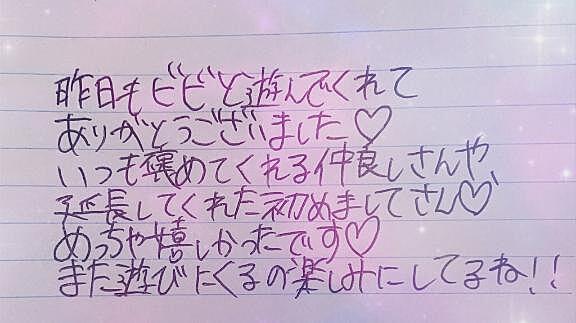 昨日もビビと遊んでくれて
ありがとうございました♡
いつも褒めてくれる仲良しさんや、
延長してくれた初めましてさん♡
めっちゃ嬉しかったです♡
また遊びにくるの楽しみにしてるね!!